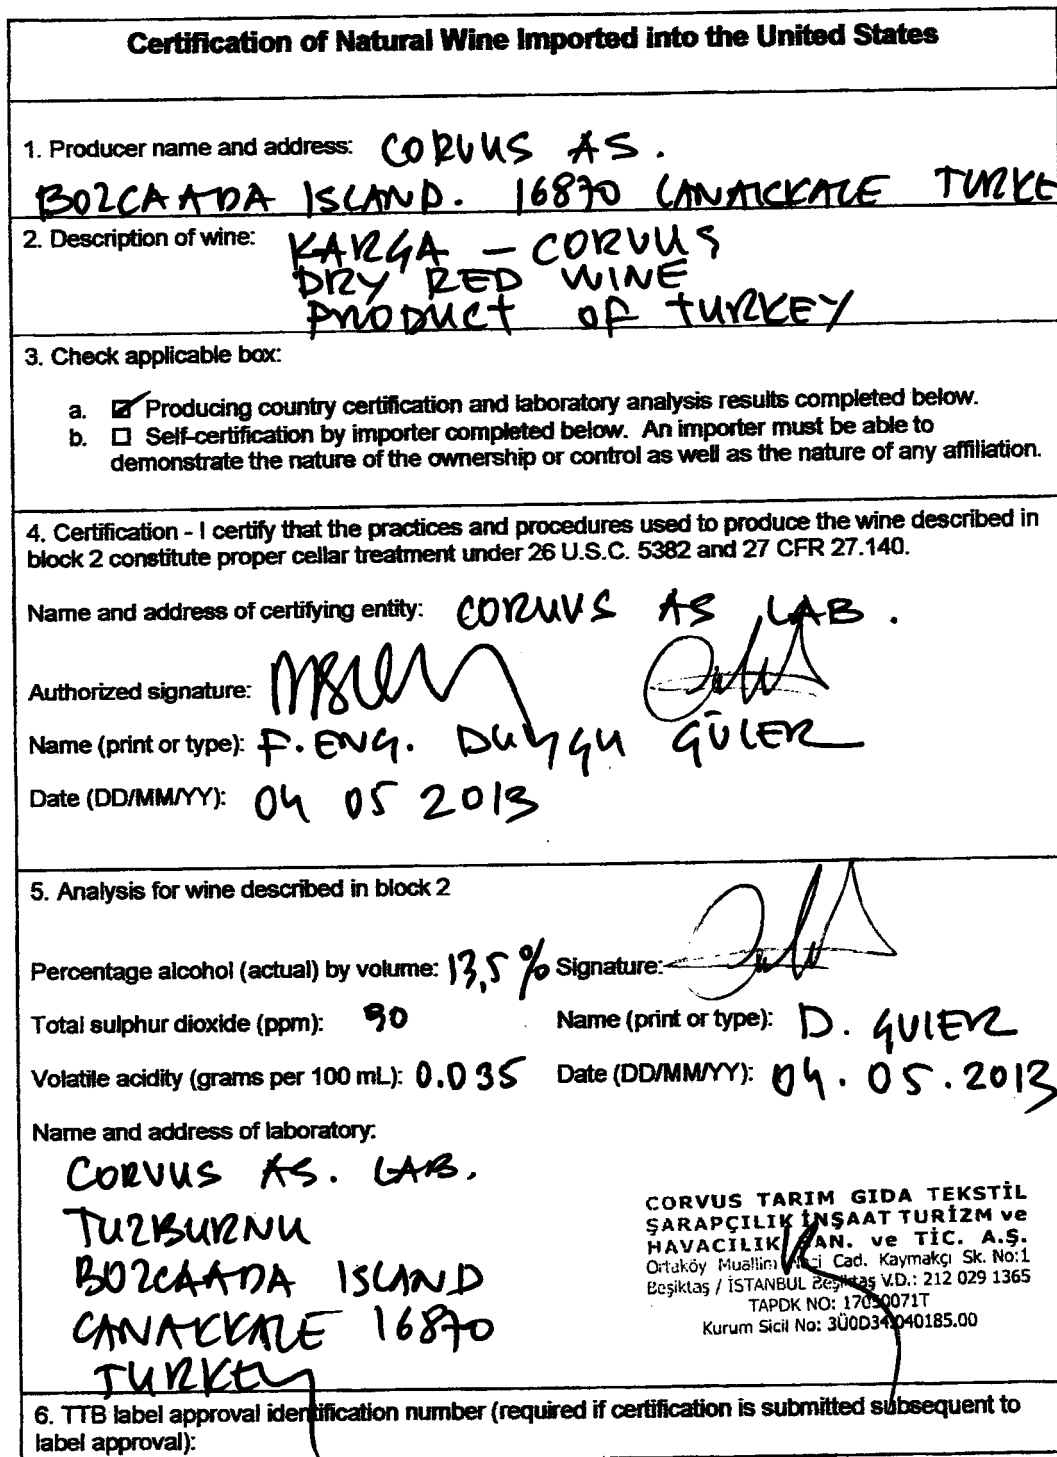 Certification of Natural Wine Imported into the United States
1. Producer name and address: CORVUS AS.
BOZCAADA ISLAND. 16870 CANAKKALE TURKE
2. Description of wine: KARGA - CORVUS
DRY RED WINE
PRODUCT OF TURKEY
3. Check applicable box:
a. ☑ Producing country certification and laboratory analysis results completed below.
b. ☐ Self-certification by importer completed below. An importer must be able to
demonstrate the nature of the ownership or control as well as the nature of any affiliation.
4. Certification - I certify that the practices and procedures used to produce the wine described in
block 2 constitute proper cellar treatment under 26 U.S.C. 5382 and 27 CFR 27.140.
Name and address of certifying entity: CORUVS AS LAB.
Authorized signature:
Name (print or type): F. ENG. DUYGU GÜLER
Date (DD/MM/YY): 04 05 2013
5. Analysis for wine described in block 2
Percentage alcohol (actual) by volume: 13,5 % Signature:
Total sulphur dioxide (ppm): 90 Name (print or type): D. GULER
Volatile acidity (grams per 100 mL): 0.035 Date (DD/MM/YY): 04.05.2013
Name and address of laboratory:
CORVUS AS. LAB.
TUZBURNU
BOZCAADA ISLAND
CANAKKALE 16870
TURKEY
CORVUS TARIM GIDA TEKSTİL
ŞARAPÇILIK İNŞAAT TURİZM ve
HAVACILIK SAN. ve TİC. A.Ş.
Ortaköy Muallim Cad. Kaymakçı Sk. No:1
Beşiktaş / İSTANBUL Beşiktaş V.D.: 212 029 1365
TAPDK NO: 17050071T
Kurum Sicil No: 3Ü0D34040185.00
6. TTB label approval identification number (required if certification is submitted subsequent to
label approval):